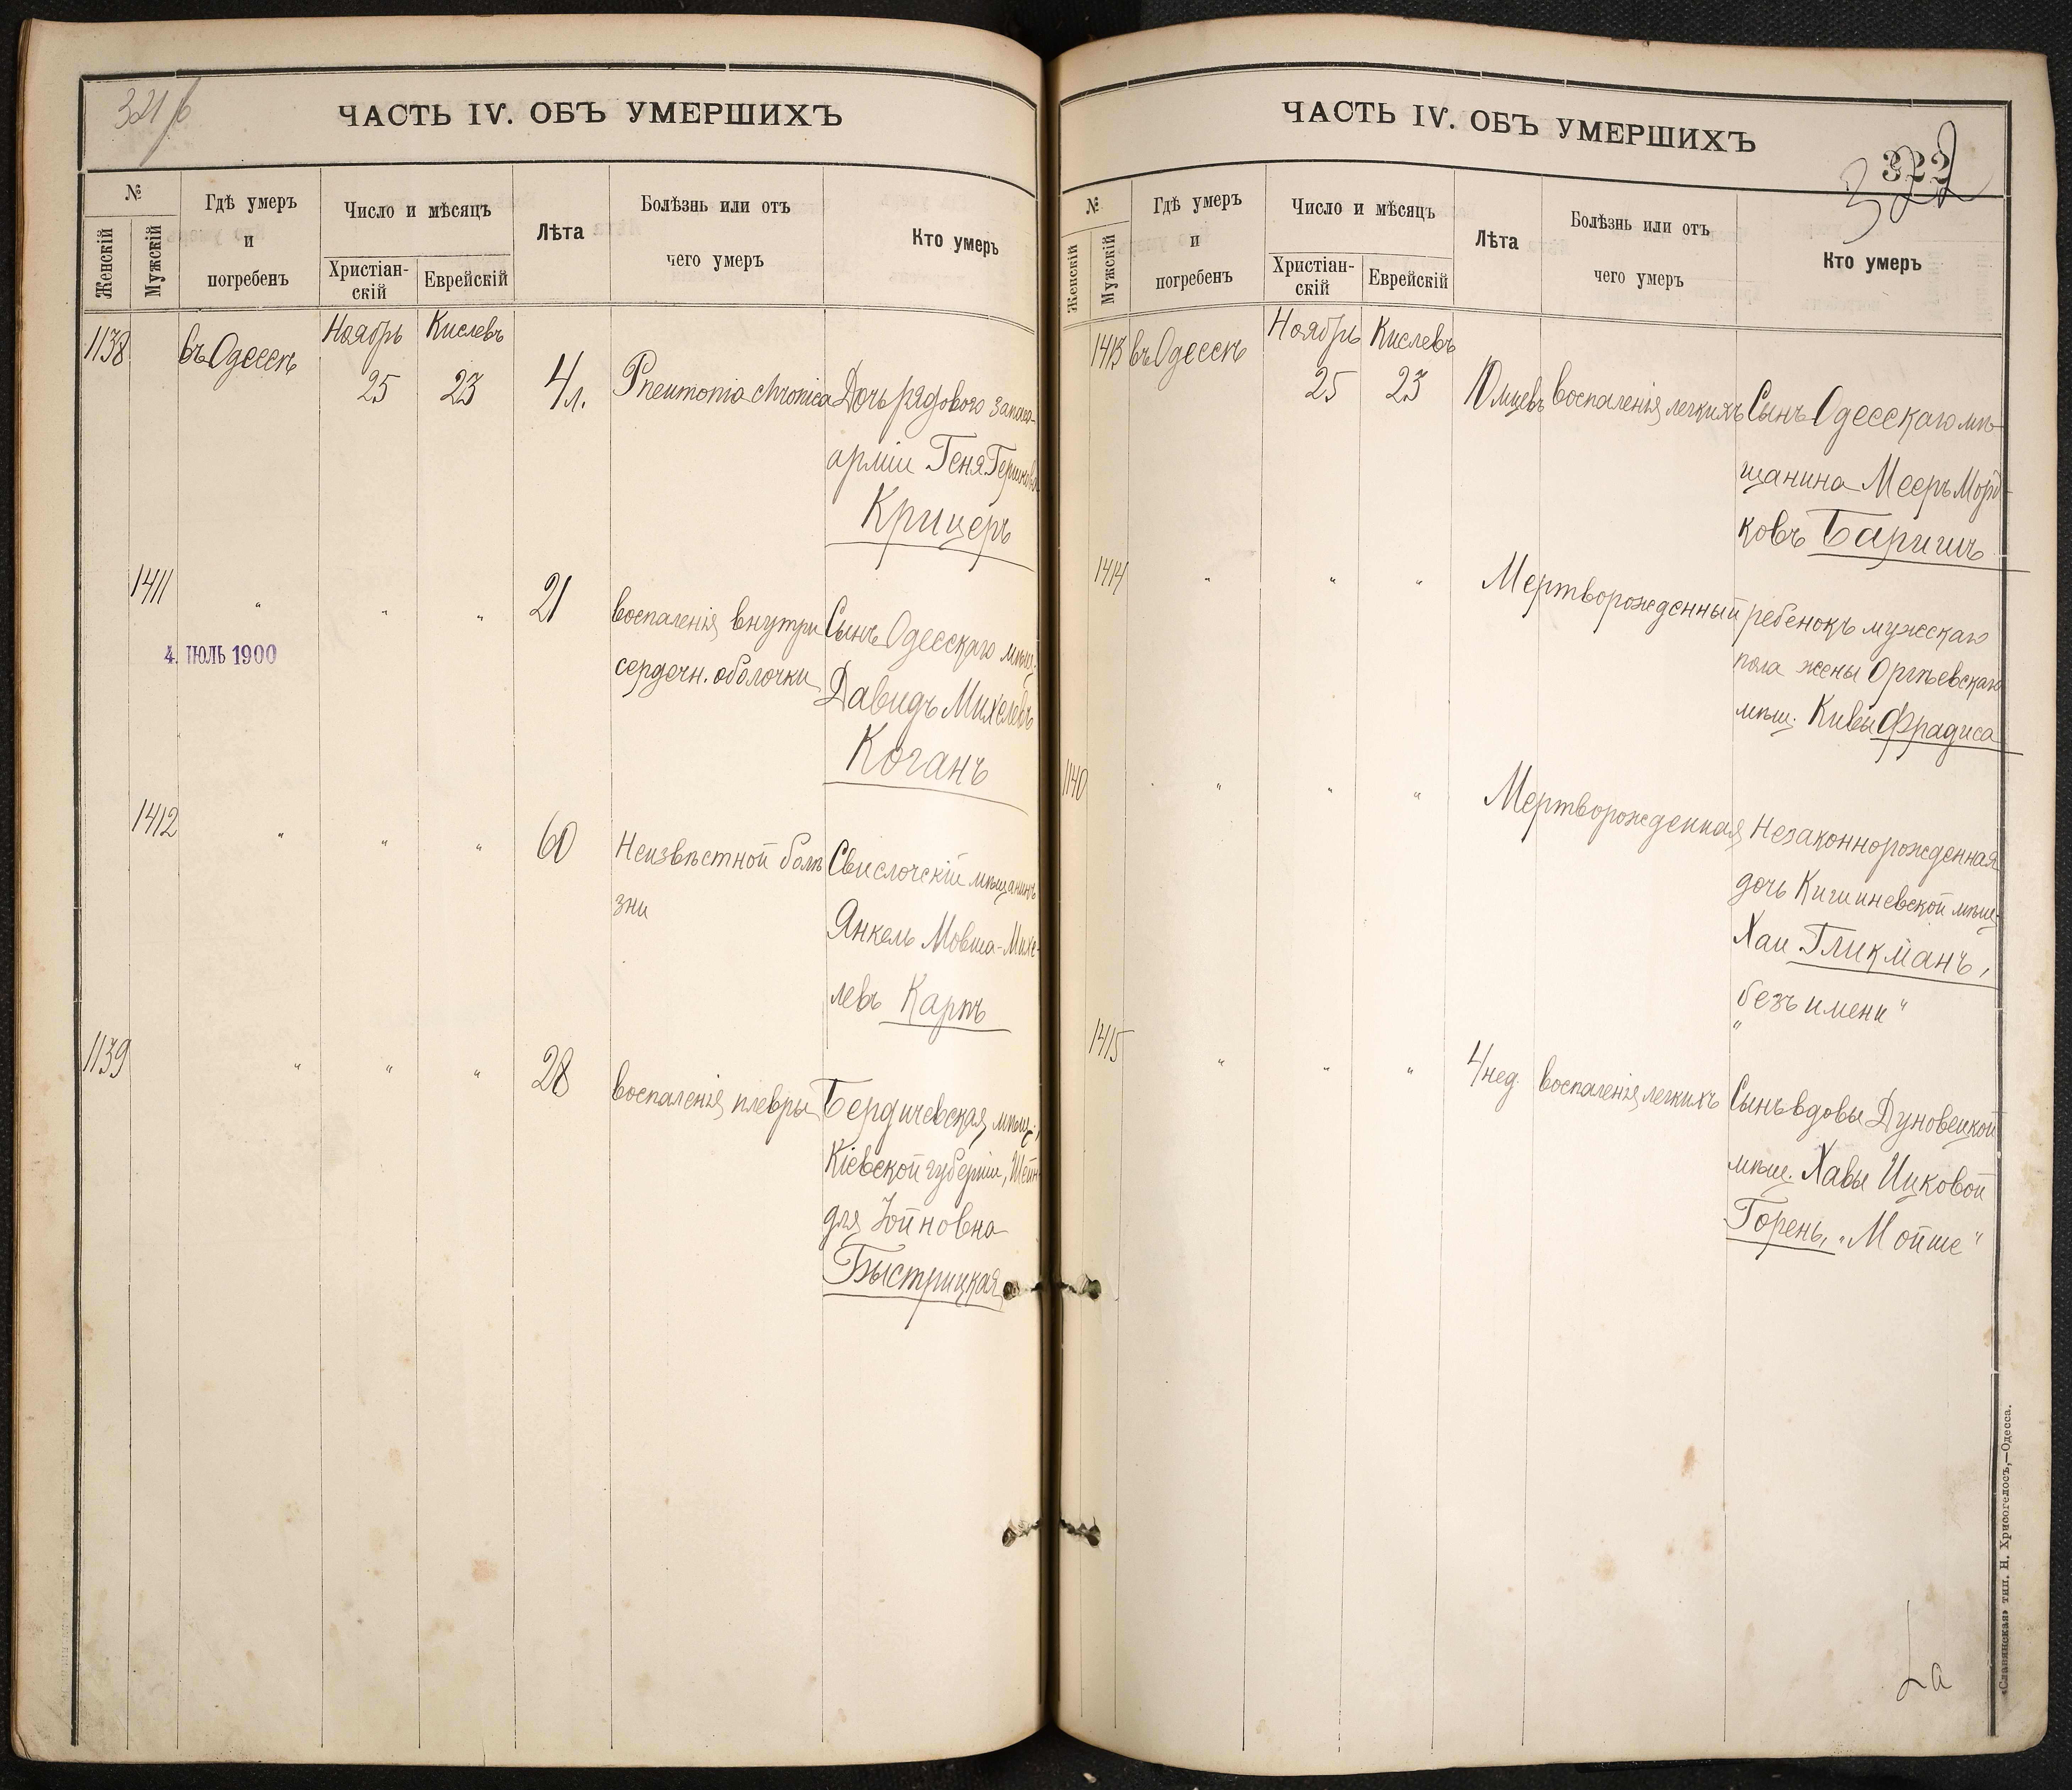 321 б
ЧАСТЬ IV. ОБЪ УМЕРШИХЪ
№
Женскій
Мужскій
Гдѣ умеръ
и
погребенъ
Число и мѣсяцъ
Христіан-
скій
Еврейскій
Лѣта
Болѣзнь или отъ
чего умеръ
Кто умеръ
1138 въ Одессѣ Ноябрь Кислевъ
25 23 4 л. Pneumonia chronica Дочь рядового запаса
арміи Геня Гершкова
Крицеръ
1411 " " " 21 воспаленія внутри Сынъ Одесскаго мѣщ.
4. ІЮЛЬ 1900
сердечн. оболочки Давидъ Михелевъ
Коганъ
1412 " " " 60 Неизвѣстной болѣ Свислочскій мѣщанинъ
зни Янкель Мовша-Михе-
левъ Карпъ
1139 " " " 28 воспаленія плевры Бердичевская мѣщ.,
Кіевской губерніи, Шейн
для Іойновна
Быстрицкая
ЧАСТЬ IV. ОБЪ УМЕРШИХЪ
322
322
№
Женскій
Мужскій
Гдѣ умеръ
и
погребенъ
Число и мѣсяцъ
Христіан-
скій
Еврейскій
Лѣта
Болѣзнь или отъ
чего умеръ
Кто умеръ
1413 въ Одессѣ Ноябрь Кислевъ
25 23 10 мцевъ воспаленія легкихъ Сынъ Одесскаго мѣ-
щанина Мееръ Морд-
ковъ Баришъ
1414 " " " Мертворожденный ребенокъ мужескаго
пола жены Оргѣевскаго
мѣщ. Кивы Фрадиса
1140 " " " Мертворожденная Незаконнорожденная
дочь Кишиневской мѣщ.
Хаи Гликманъ,
"безъ имени"
1415 " " " 4 нед. воспаленія легкихъ Сынъ вдовы Дуновецкой
мѣщ. Хавы Ицковой
Горень, "Мойше"
«Славянская» тип. Н. Хрисогелосъ,—Одесса.